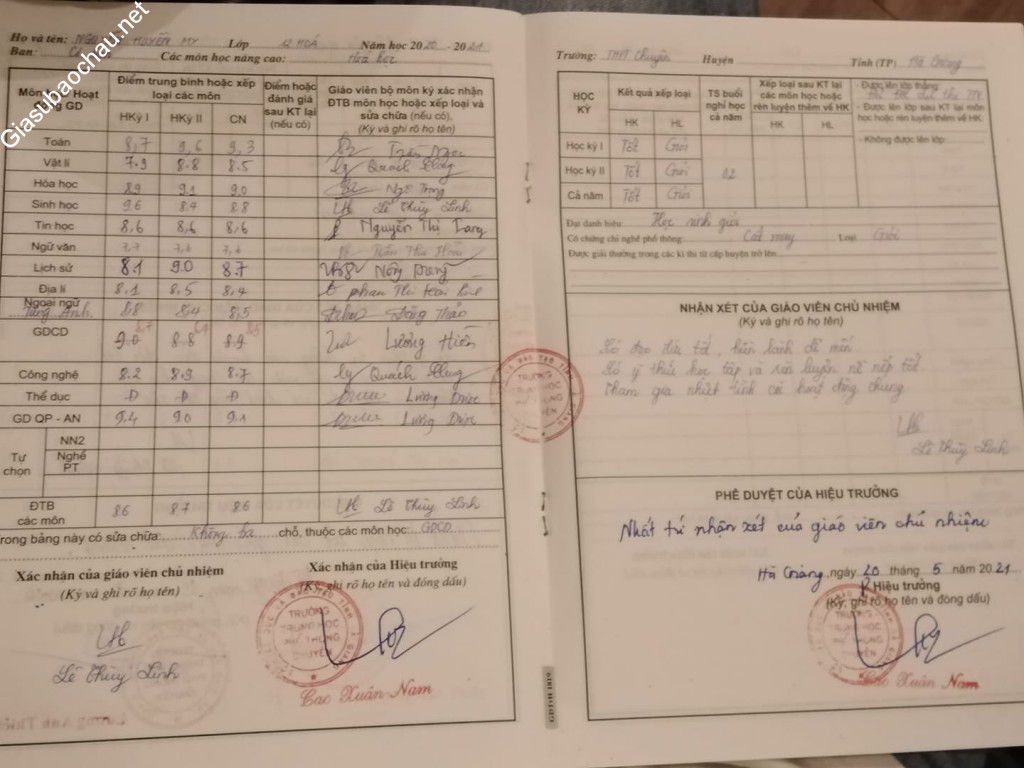 Giasubaochau.net
Họ và tên: HUYỀN MY Lớp 12 HOÁ Năm học 2020 - 2021
Ban: Các môn học nâng cao: Hoá học
Môn học/Hoạt động GD
Điểm trung bình hoặc xếp loại các môn
HKỳ I HKỳ II CN
Điểm hoặc đánh giá sau KT lại (nếu có)
Giáo viên bộ môn ký xác nhận ĐTB môn học hoặc xếp loại và sửa chữa (nếu có).
(Ký và ghi rõ họ tên)
Toán 8,7 9,6 9,3 Trần
Vật lí 7.9 8.8 8.5 Quách
Hóa học 8.9 9.1 9.0 Ngô Trong
Sinh học 9.6 8.4 8.8 Lê Thùy Linh
Tin học 8.6 8.6 8,6 Nguyễn Thị Trang
Ngữ văn 7,7 7,6 7,6 Trần Thu
Lịch sử 8.1 9.0 8.7 Nông
Địa lí 8.1 8.5 8,4 Phan Thị
Ngoại ngữ
Tiếng Anh 8,8 8,4 8,5 Đặng Thảo
GDCD 9.0 8.8 8.9 Lương Hiền
Công nghệ 8.2 8.9 8.7 Quách
Thể dục Đ Đ Đ Lương
GD QP - AN 9.4 9.0 9.1 Lương
Tự chọn
NN2
Nghề PT
ĐTB các môn 8.6 8.7 8.6 Lê Thùy Linh
rong bảng này có sửa chữa: Không ba chỗ, thuộc các môn học: GDCD
Xác nhận của giáo viên chủ nhiệm
(Ký và ghi rõ họ tên)
Lê Thùy Linh
Xác nhận của Hiệu trưởng
(Ký, ghi rõ họ tên và đóng dấu)
Cao Xuân Nam
Trường: THPT Chuyên Huyện Tỉnh (TP) Hà Giang
HỌC KỲ
Kết quả xếp loại
HK HL
TS buổi nghỉ học cả năm
Xếp loại sau KT lại các môn học hoặc rèn luyện thêm về HK
HK HL
- Được lên lớp thẳng:
- Được lên lớp sau KT lại môn học hoặc rèn luyện thêm về HK
- Không được lên lớp:
Học kỳ I Tốt Giỏi
Học kỳ II Tốt Giỏi
Cả năm Tốt Giỏi
Đạt danh hiệu: Học sinh giỏi
Có chứng chỉ nghề phổ thông: Cắt may Loại: Giỏi
Được giải thưởng trong các kì thi từ cấp huyện trở lên
NHẬN XÉT CỦA GIÁO VIÊN CHỦ NHIỆM
(Ký và ghi rõ họ tên)
Có đạo đức tốt, hiền lành dễ mến
Có ý thức học tập và rèn luyện nề nếp tốt
Tham gia nhiệt tình các hoạt động chung
Lê Thùy Linh
PHÊ DUYỆT CỦA HIỆU TRƯỞNG
Nhất trí nhận xét của giáo viên chủ nhiệm
Hà Giang, ngày 20 tháng 5 năm 2021
Hiệu trưởng
(Ký, ghi rõ họ tên và đóng dấu)
Cao Xuân Nam